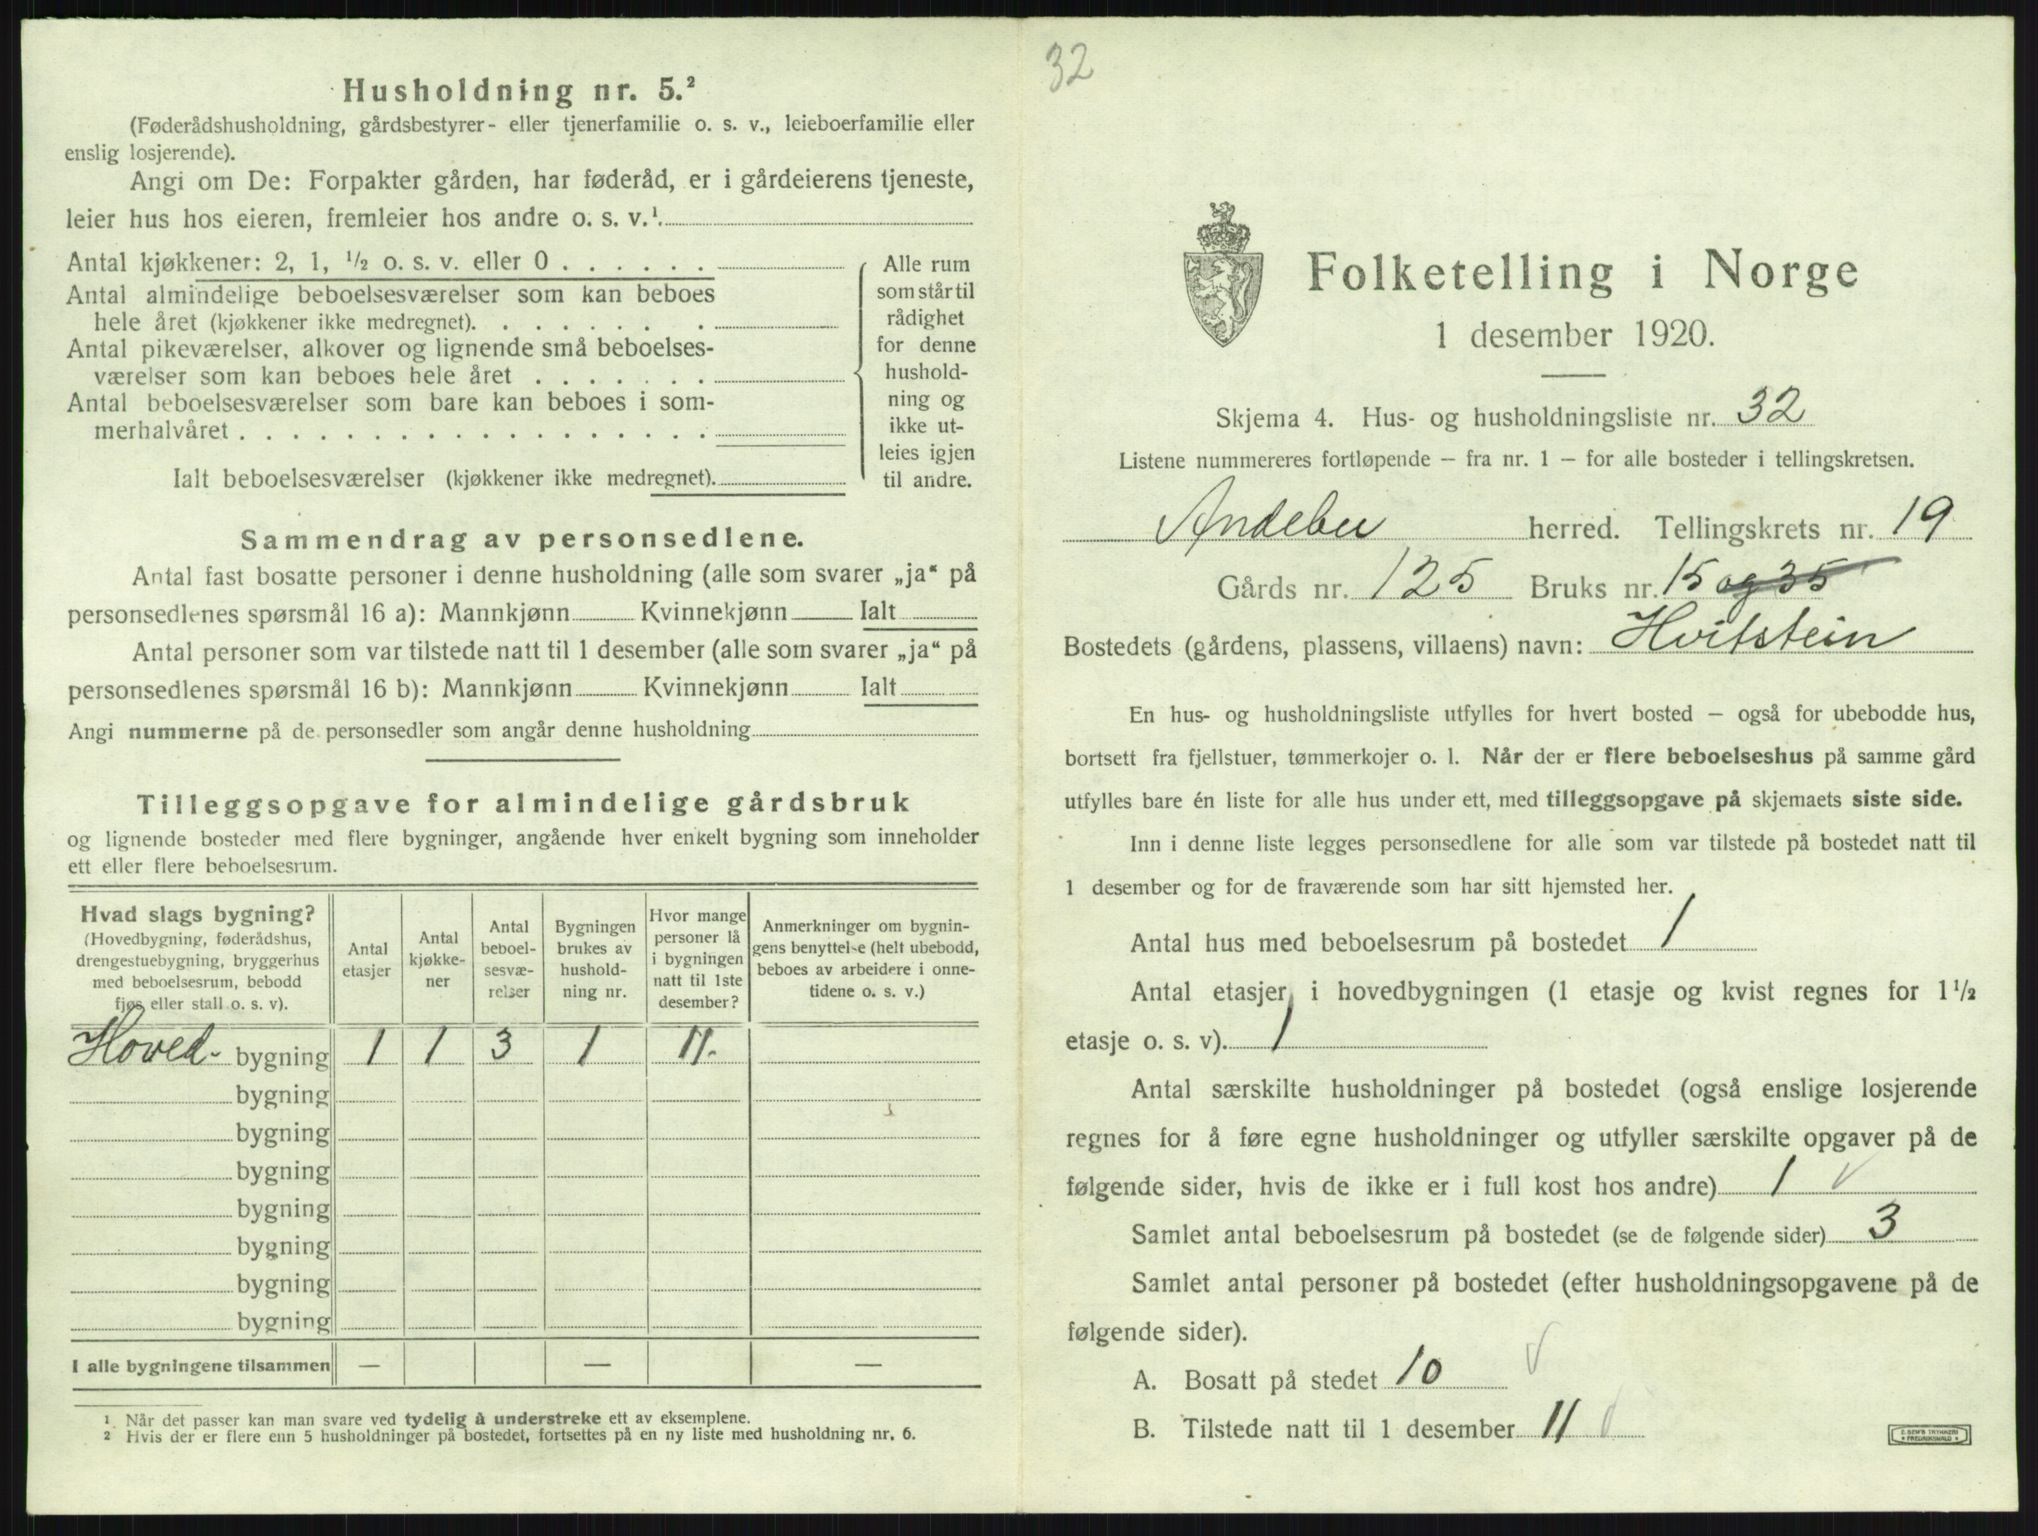 Husholdning nr. 5.²
(Føderådshusholdning, gårdsbestyrer- eller tjenerfamilie o. s. v., leieboerfamilie eller
enslig losjerende).
Angi om De: Forpakter gården, har føderåd, er i gårdeierens tjeneste,
leier hus hos eieren, fremleier hos andre o. s. v.¹.
Antal kjøkkener: 2, 1, ½ o. s. v. eller 0 . . . . . .
Antal almindelige beboelsesværelser som kan beboes
hele året (kjøkkener ikke medregnet). . . . . . . .
Antal pikeværelser, alkover og lignende små beboelses-
værelser som kan beboes hele året . . . . . . .
Antal beboelsesværelser som bare kan beboes i som-
merhalvåret . . . . . . . . . . . . . . . . . .
Ialt beboelsesværelser (kjøkkener ikke medregnet).
Alle rum
som står til
rådighet
for denne
hushold-
ning og
ikke ut-
leies igjen
til andre.
Sammendrag av personsedlene.
Antal fast bosatte personer i denne husholdning (alle som svarer „ja“ på
personsedlenes spørsmål 16 a): Mannkjønn Kvinnekjønn Ialt
Antal personer som var tilstede natt til 1 desember (alle som svarer „ja“ på
personsedlenes spørsmål 16 b): Mannkjønn Kvinnekjønn Ialt
Angi nummerne på de personsedler som angår denne husholdning
Tilleggsopgave for almindelige gårdsbruk
og lignende bosteder med flere bygninger, angående hver enkelt bygning som inneholder
ett eller flere beboelsesrum.
Hvad slags bygning?
(Hovedbygning, føderådshus,
drengestuebygning, bryggerhus
med beboelsesrum, bebodd
fjøs eller stall o. s. v).
Antal
etasjer
Antal
kjøkke-
ner
Antal
beboel-
sesvæ-
relser
Bygningen
brukes av
hushold-
ning nr.
Hvor mange
personer lå
i bygningen
natt til 1ste
desember?
Anmerkninger om bygnin-
gens benyttelse (helt ubebodd,
beboes av arbeidere i onne-
tidene o. s. v.)
Hoved- bygning 1 1 3 1 11.
bygning
bygning
bygning
bygning
bygning
bygning
bygning
I alle bygningene tilsammen — — —
¹ Når det passer kan man svare ved tydelig å understreke ett av eksemplene.
² Hvis der er flere enn 5 husholdninger på bostedet, fortsettes på en ny liste med husholdning nr. 6.
32
Folketelling i Norge
1 desember 1920.
Skjema 4. Hus- og husholdningsliste nr. 32
Listene nummereres fortløpende — fra nr. 1 — for alle bosteder i tellingskretsen.
Andebu herred. Tellingskrets nr. 19
Gårds nr. 125 Bruks nr. 15 og 35
Bostedets (gårdens, plassens, villaens) navn: Hvitstein
En hus- og husholdningsliste utfylles for hvert bosted — også for ubebodde hus,
bortsett fra fjellstuer, tømmerkojer o. l. Når der er flere beboelseshus på samme gård
utfylles bare én liste for alle hus under ett, med tilleggsopgave på skjemaets siste side.
Inn i denne liste legges personsedlene for alle som var tilstede på bostedet natt til
1 desember og for de fraværende som har sitt hjemsted her.
Antal hus med beboelsesrum på bostedet 1
Antal etasjer i hovedbygningen (1 etasje og kvist regnes for 1½
etasje o. s. v). 1
Antal særskilte husholdninger på bostedet (også enslige losjerende
regnes for å føre egne husholdninger og utfyller særskilte opgaver på de
følgende sider, hvis de ikke er i full kost hos andre) 1 ✓
Samlet antal beboelsesrum på bostedet (se de følgende sider) 3
Samlet antal personer på bostedet (efter husholdningsopgavene på de
følgende sider).
A. Bosatt på stedet 10 ✓
B. Tilstede natt til 1 desember 11 ✓